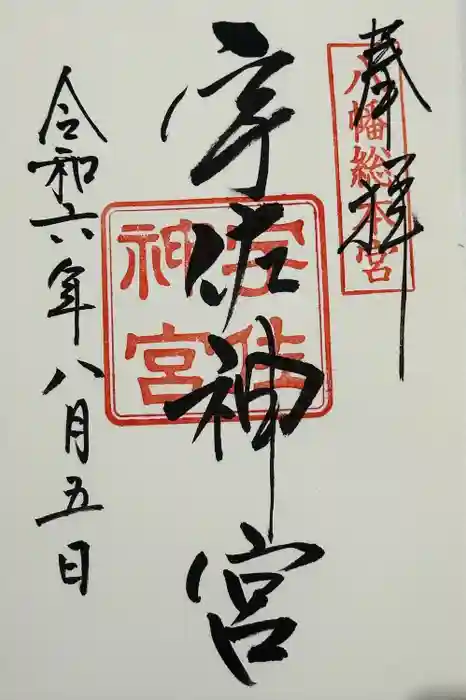 奉拝
八幡総本宮
宇佐神宮
宇佐
神宮
令和六年八月五日